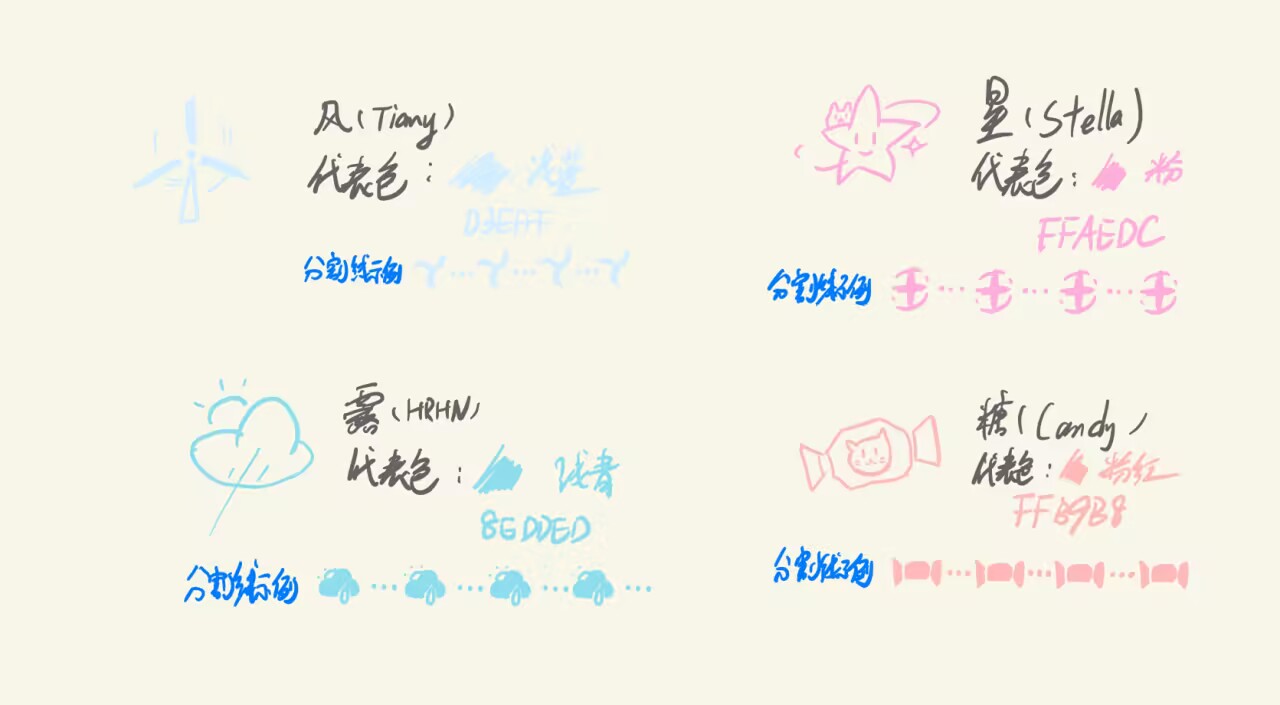 风(Tiamy)
代表色： 浅蓝
D3EFFF
分割线示例
星(Stella)
代表色： 粉
FFAEDC
分割线示例
露(HRHN)
代表色： 浅青
8EDDED
分割线示例
糖(Candy)
代表色： 粉红
FFB9B8
分割线示例